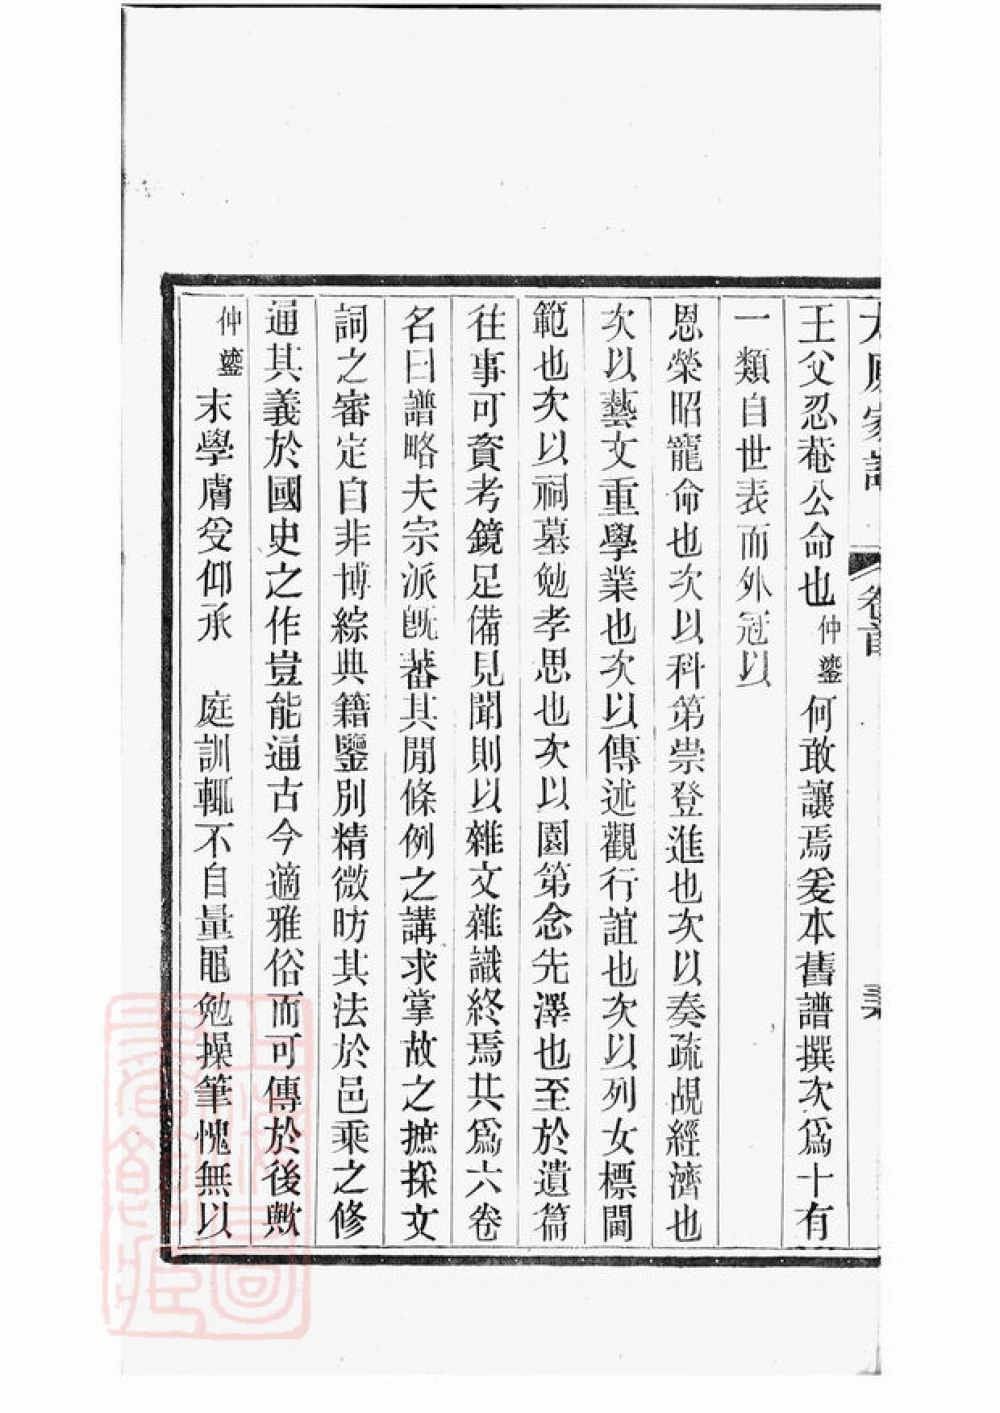 太原家譜 卷首
王父忍菴公命也仲鎣何敢讓焉爰本舊譜撰次爲十有
一類自世表而外冠以
恩榮昭寵命也次以科第崇登進也次以奏疏覘經濟也
次以藝文重學業也次以傳述觀行誼也次以列女標閫
範也次以祠墓勉孝思也次以園第念先澤也至於遺篇
往事可資考鏡足備見聞則以雜文雜識終焉共爲六卷
名曰譜略夫宗派旣蕃其閒條例之講求掌故之摭採文
詞之審定自非博綜典籍鑒別精微昉其法於邑乘之修
通其義於國史之作豈能通古今適雅俗而可傳於後歟
仲鎣末學膚受仰承 庭訓輒不自量黽勉操筆愧無以